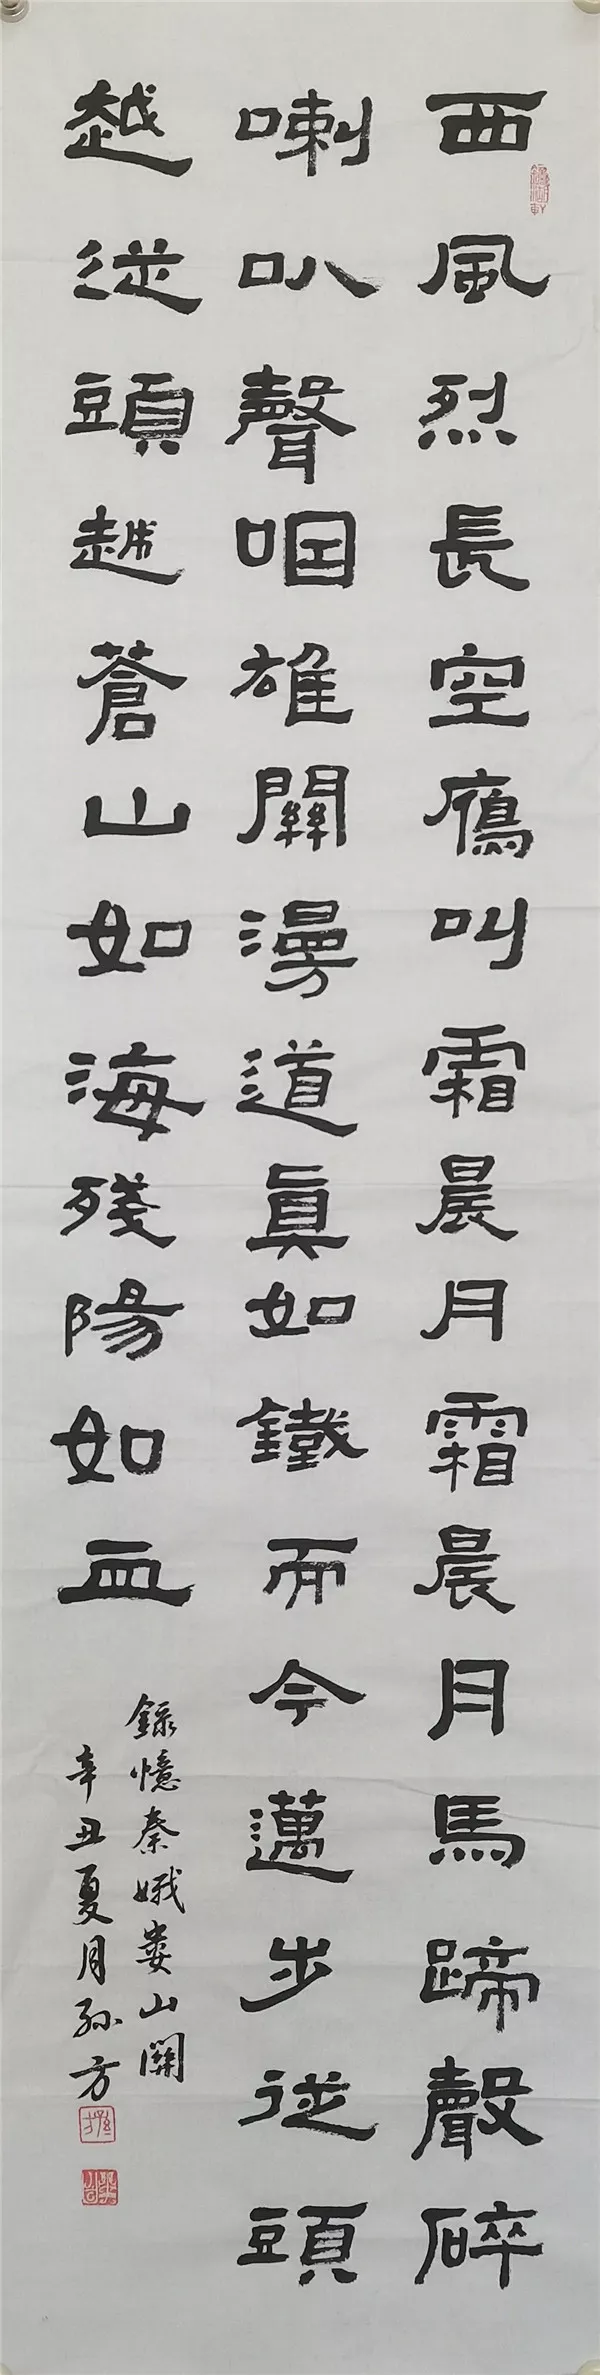 西風烈長空鴈叫霜晨月霜晨月馬蹄聲碎
喇叭聲咽雄關漫道眞如鐵而今邁步從頭
越從頭越蒼山如海殘陽如血
錄憶秦娥婁山關
辛丑夏月孫方